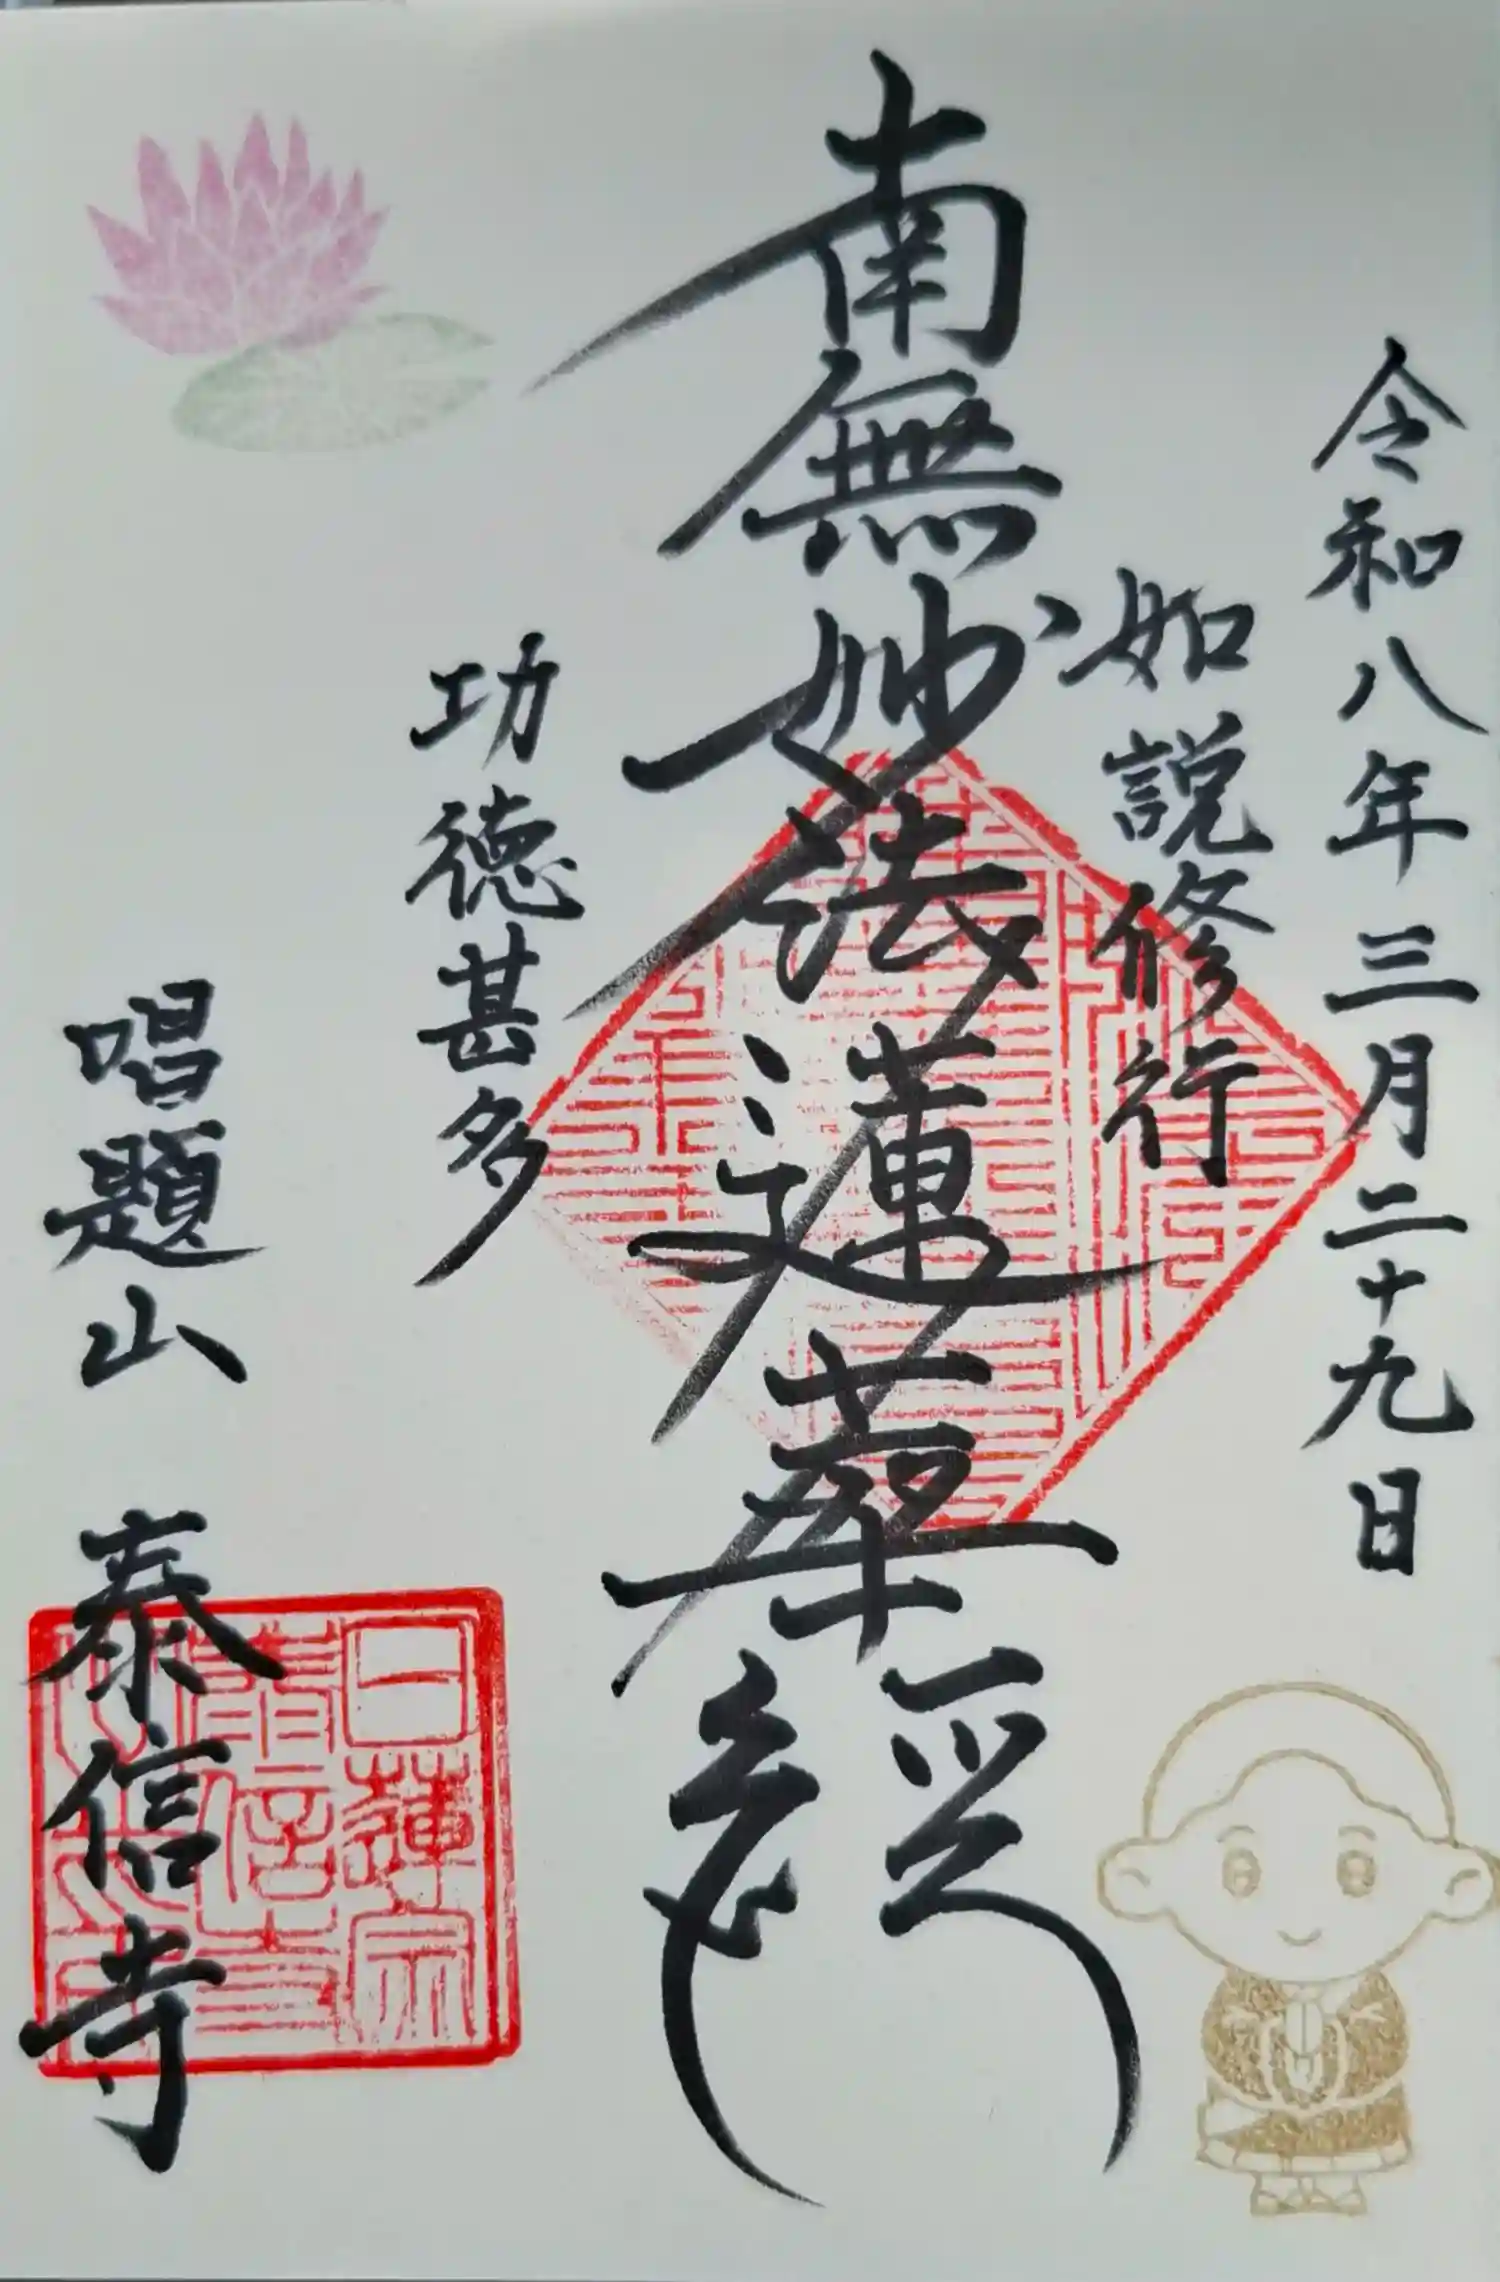 令和八年三月二十九日
如説修行
南無妙法蓮華経
功徳甚多
唱題山 泰信寺
日蓮宗
泰信寺